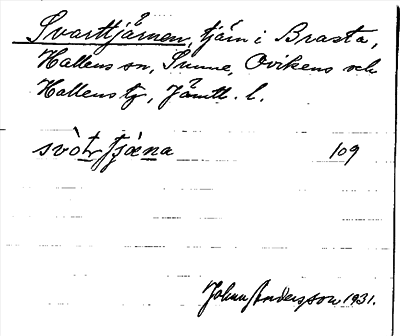 Svarttjärnen, tjärn i Brasta,
Hallens sn, Sunne, Ovikens och
Hallens tg, Jämtl. l.
svòt̠r̠ tjæn̠a 109
Johan Andersson 1931.